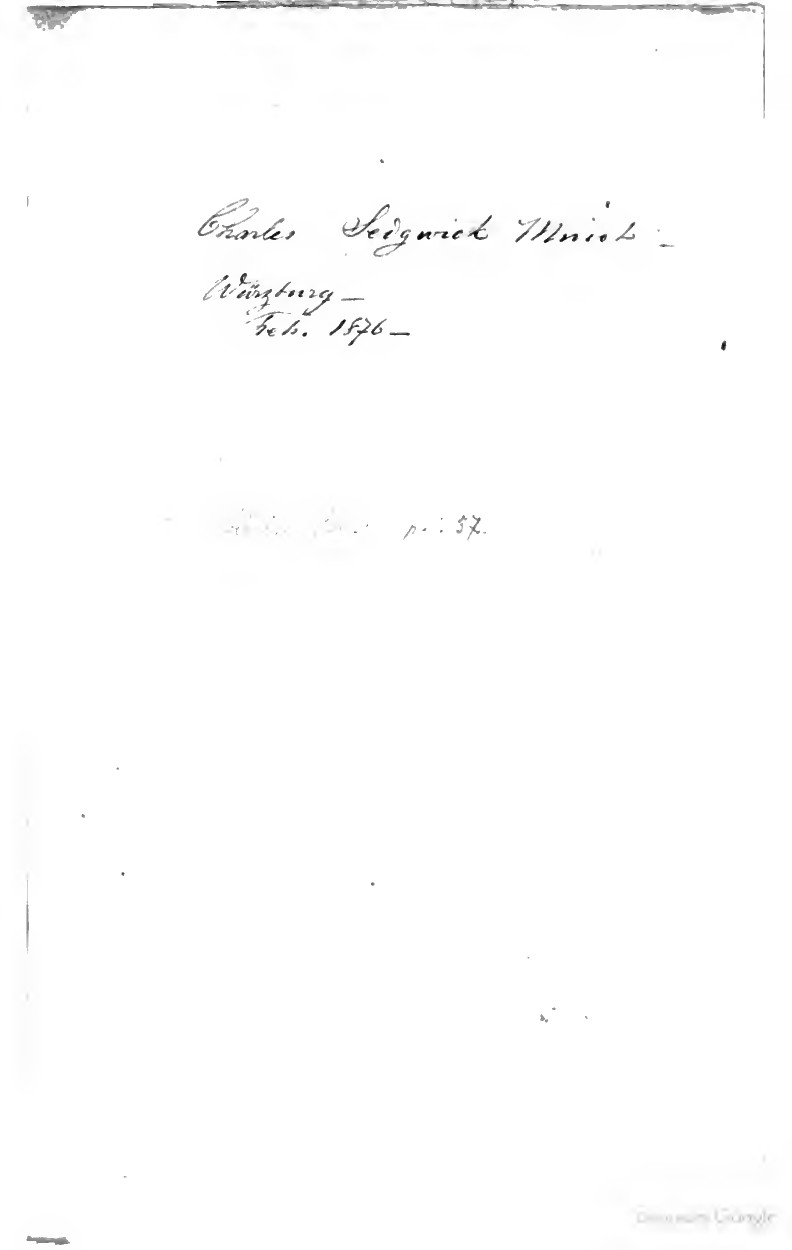 Charles Sedgwick Minot —
Würzburg —
Feb. 1876 —
p. 57.
Google